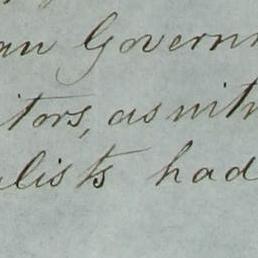 an Governm
itors, as witn
lists had